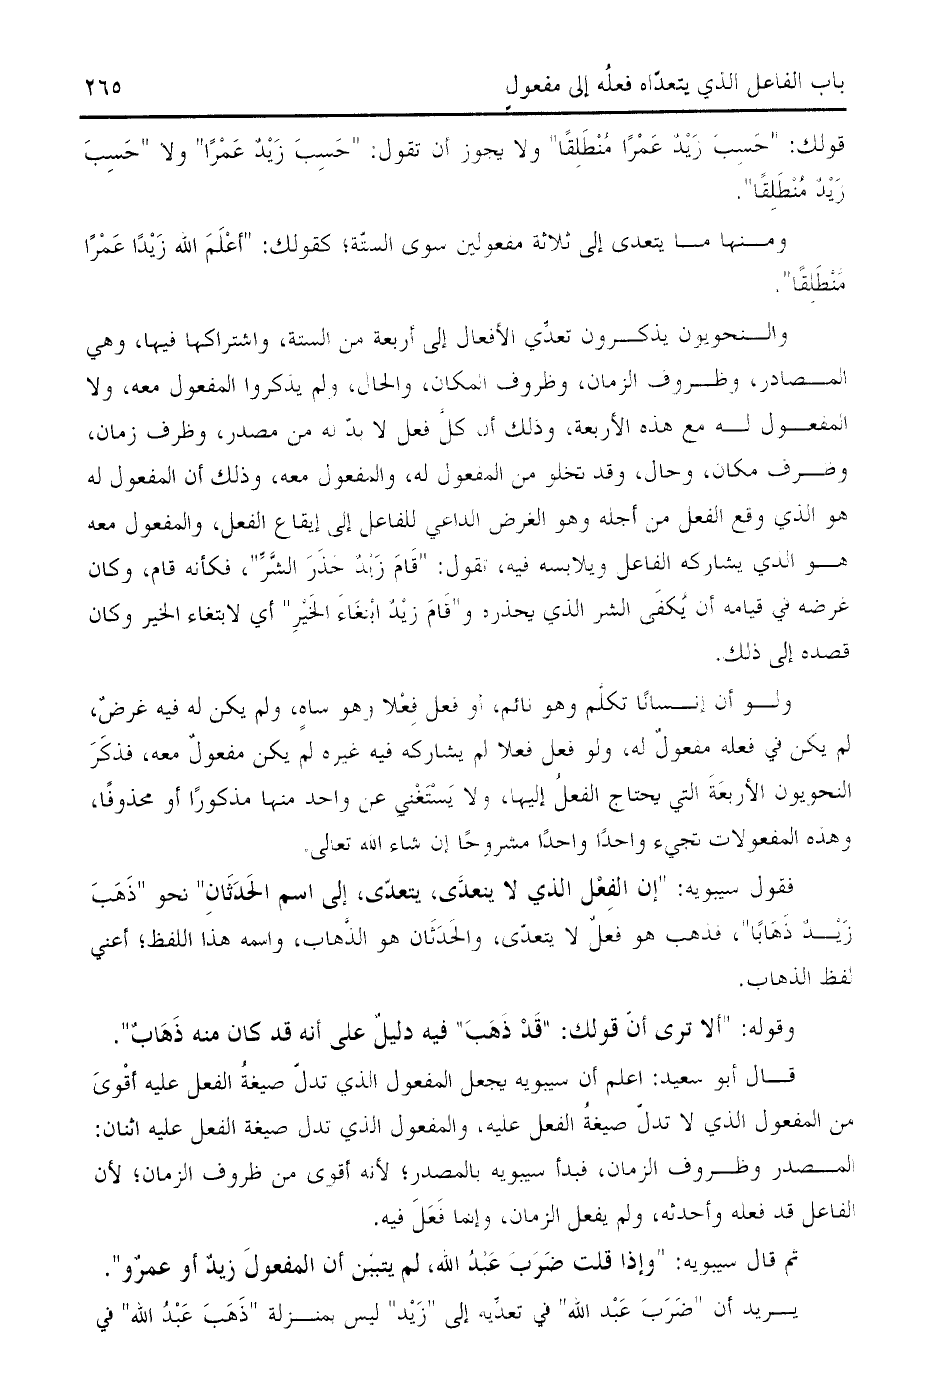 باب الفاعل الذي يتعدّاه فعلُه إلى مفعولٍ ٢٦٥
قولك: "حَسِبَ زَيْدٌ عَمْرًا مُنْطَلِقًا" ولا يجوز أن تقول: "حَسِبَ زَيْدٌ عَمْرًا" ولا "حَسِبَ
زَيْدٌ مُنْطَلِقًا".
ومـنها مـا يتعدى إلى ثلاثة مفعولين سوى الستّة؛ كقولك: "أعْلَمَ الله زَيْدًا عَمْرًا
مُنْطَلِقًا".
والـنحويون يذكـرون تعدِّي الأفعال إلى أربعة من الستة، واشتراكها فيها، وهي
المـصادر، وظـروف الزمان، وظروف المكان، والحال، ولم يذكروا المفعول معه، ولا
المفعـول لـه مع هذه الأربعة، وذلك أن كلَّ فعل لا بدّ له من مصدر، وظرف زمان،
وظـرف مكان، وحال، وقد تخلو من المفعول له، والمفعول معه، وذلك أن المفعول له
هو الذي وقع الفعل من أجله وهو الغرض الداعي للفاعل إلى إيقاع الفعل، والمفعول معه
هـو الذي يشاركه الفاعل ويلابسه فيه، تقول: "قَامَ زَيْدٌ حَذَرَ الشَّرِّ"، فكأنه قام، وكان
غرضه في قيامه أن يُكفَى الشر الذي يحذره و"قَامَ زَيْدٌ ابْتِغَاءَ الخَيْرِ" أي لابتغاء الخير وكان
قصده إلى ذلك.
ولـو أن إنـسانًا تكلّم وهو نائم، أو فعل فِعْلا وهو ساهٍ، ولم يكن له فيه غرضٌ،
لم يكن في فعله مفعولٌ له، ولو فعل فعلا لم يشاركه فيه غيره لم يكن مفعولٌ معه، فذكَرَ
النحويون الأربعَةَ التي يحتاج الفعلُ إليها، ولا يَسْتَغْني عن واحد منها مذكورًا أو محذوفًا،
وهذه المفعولات تجيء واحدًا واحدًا مشروحًا إن شاء الله تعالى.
فقول سيبويه: "إن الفِعْل الذي لا يتعدَّى، يتعدّى، إلى اسم الحَدَثَانِ" نحو "ذَهَبَ
زَيْـدٌ ذَهَابًا"، فذهب هو فعلٌ لا يتعدّى، والحَدَثَان هو الذَّهاب، واسمه هذا اللفظ؛ أعني
لفظ الذهاب.
وقوله: "ألا ترى أنّ قولك: "قَدْ ذَهَبَ" فيه دليلٌ على أنه قد كان منه ذَهَابٌ".
قـال أبو سعيد: اعلم أن سيبويه يجعل المفعول الذي تدلّ صيغةُ الفعل عليه أقْوىَ
من المفعول الذي لا تدلّ صيغةُ الفعل عليه، والمفعول الذي تدل صيغة الفعل عليه اثنان:
المـصدر وظـروف الزمان، فبدأ سيبويه بالمصدر؛ لأنه أقوى من ظروف الزمان؛ لأن
الفاعل قد فعله وأحدثه، ولم يفعل الزمان، وإنما فَعَلَ فيه.
ثم قال سيبويه: "وإذا قلت ضَرَبَ عَبْدُ الله، لم يتبيّن أن المفعولَ زيدٌ أو عمرٌو".
يـريد أن "ضَرَبَ عَبْد الله" في تعدّيه إلى "زَيْد" ليس بمنـزلة "ذَهَبَ عَبْدُ الله" في